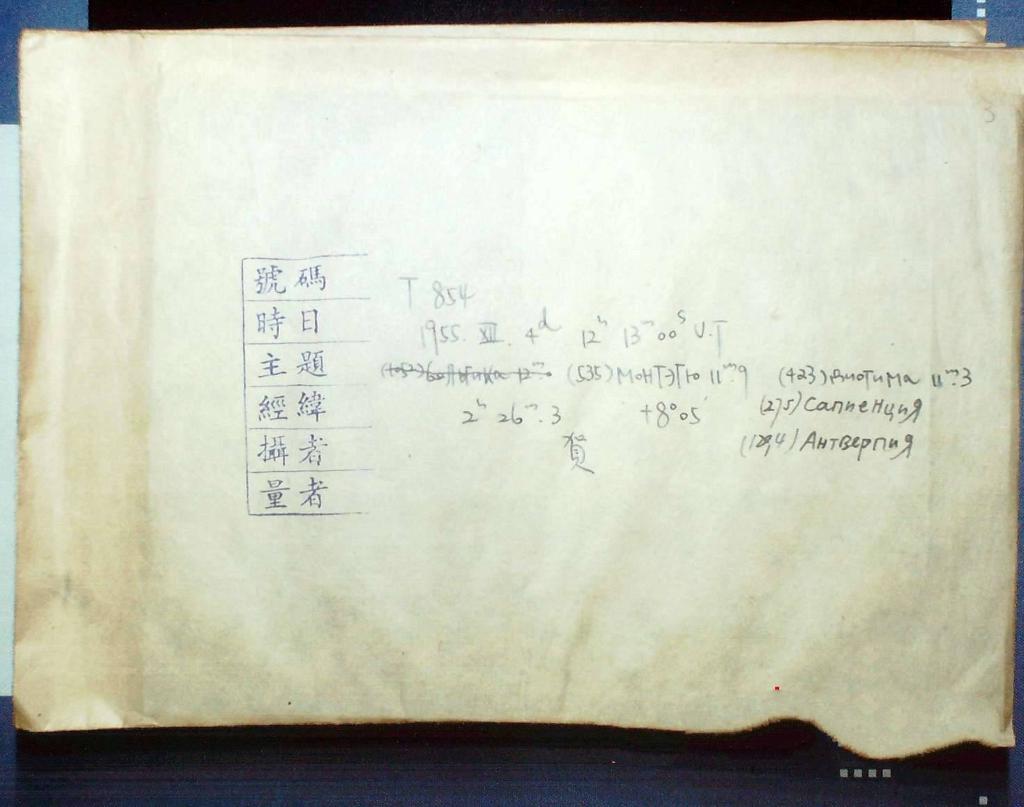 號碼 T 854
時日 1955. XII. 4ᵈ 12ʰ 13ᵐ 00ˢ U.T
主題 (535) МОНТЭГЮ 11ᵐ.9 (423) Диотима 11ᵐ.3
經緯 2ʰ 26ᵐ.3 +8°05' (275) Сапиенция
攝者 賀 (1294) Антверпия
量者